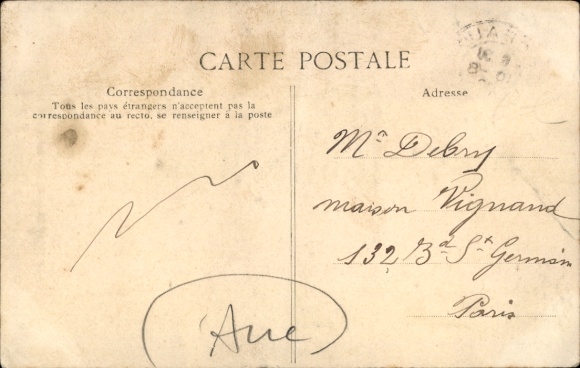 CARTE POSTALE
Correspondance
Tous les pays étrangers n'acceptent pas la
correspondance au recto, se renseigner à la poste
Adresse
Mr Debry
maison Vignand
132 Bd St Germain
Paris